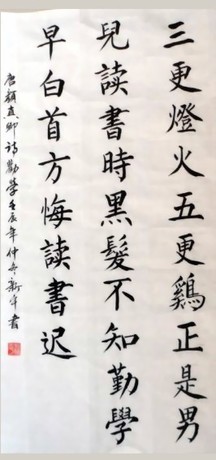 三更燈火五更鷄正是男
兒讀書時黑髮不知勤學
早白首方悔讀書迟
唐顏真卿詩勸學壬辰年仲冬新年書